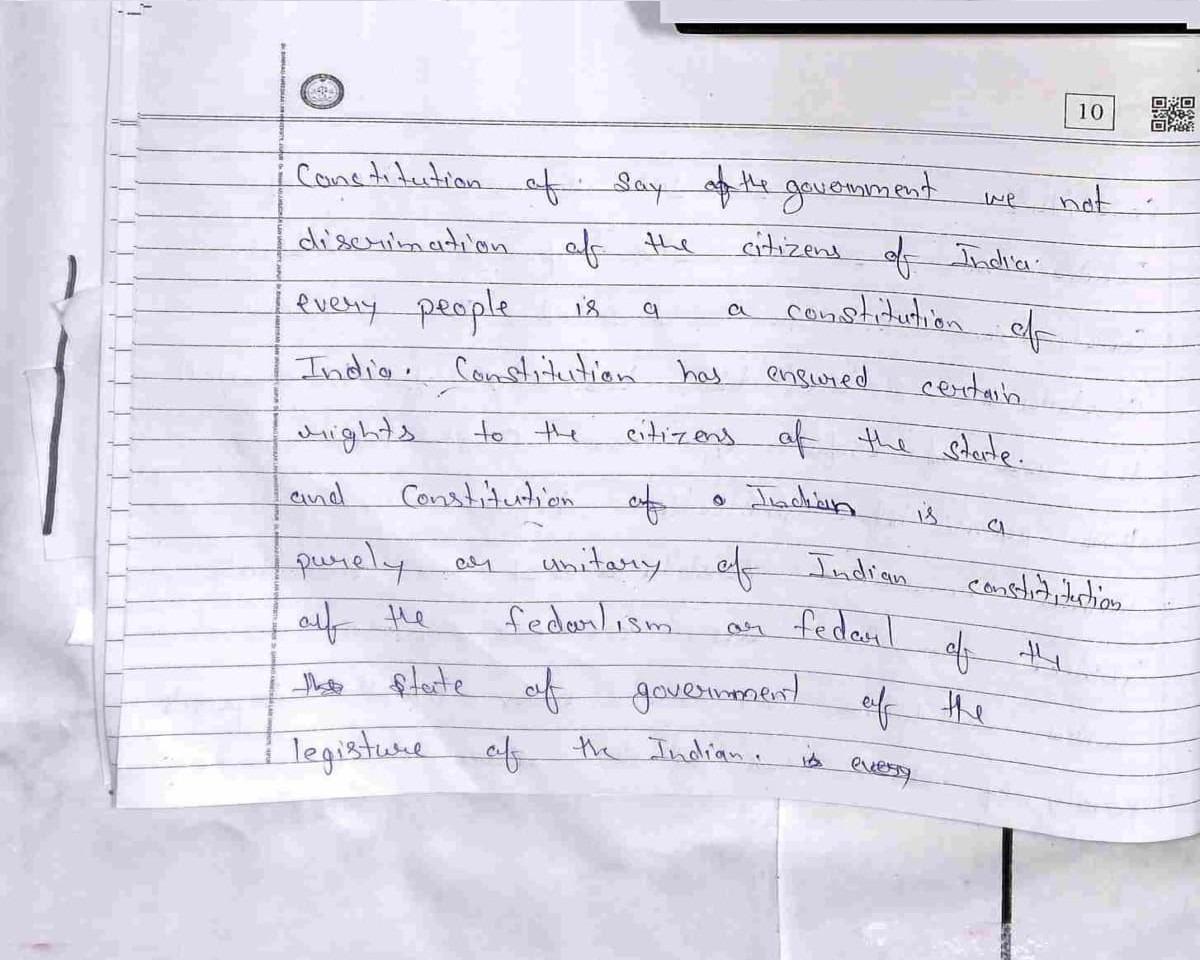 10
Constitution of. Say of the government we not
discrimation of the citizens of India.
every people is a a constitution of
India. Constitution has ensured certain
rights to the citizens of the state.
and Constitution of Indian is a
purely or unitary of Indian constitution
of the fedarlism or fedarl of the
the state of government of the
legisture of the Indian. is every